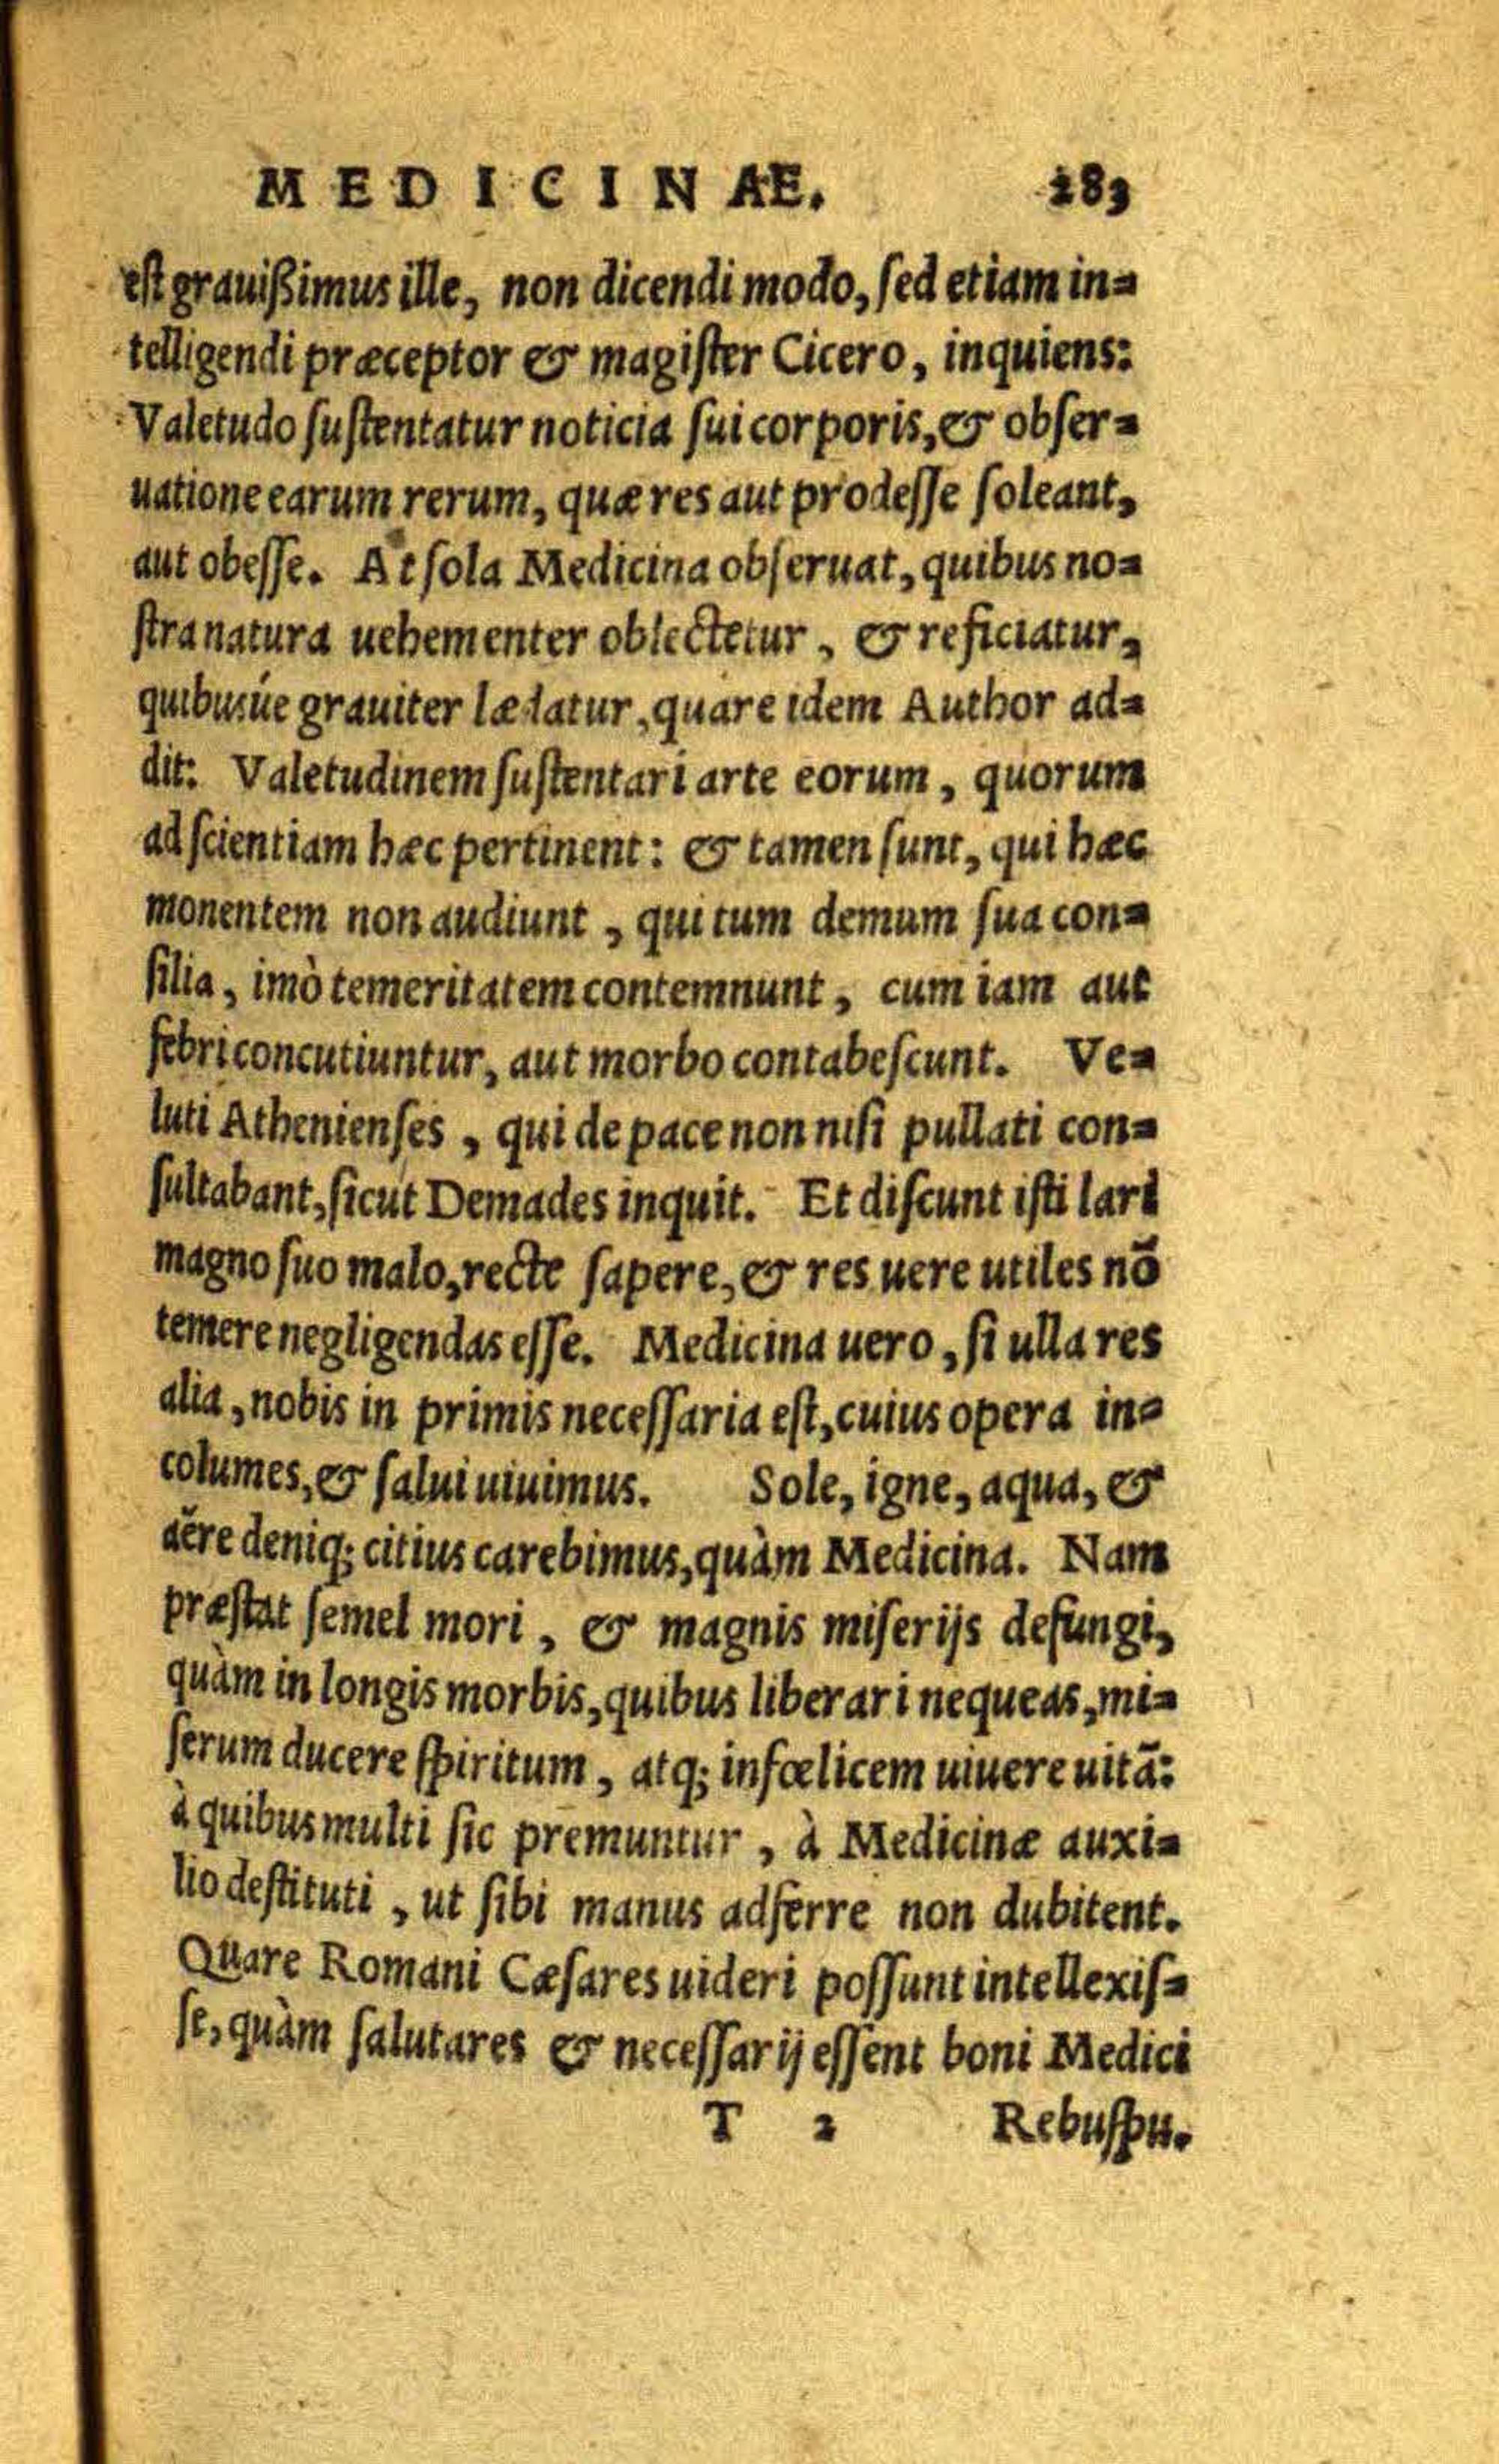 MEDICINAE. 283
est grauißimus ille, non dicendi modo, sed etiam in=
telligendi præceptor & magister Cicero, inquiens:
Valetudo sustentatur noticia sui corporis, & obser=
uatione earum rerum, quæ res aut prodesse soleant,
aut obesse. At sola Medicina obseruat, quibus no=
stra natura uehementer oblectetur, & reficiatur,
quibusúe grauiter lædatur, quare idem Author ad=
dit: Valetudinem sustentari arte eorum, quorum
ad scientiam hæc pertinent: & tamen sunt, qui hæc
monentem non audiunt, qui tum demum sua con=
silia, imò temeritatem contemnunt, cum iam aut
febri concutiuntur, aut morbo contabescunt. Ve=
luti Athenienses, qui de pace non nisi pullati con=
sultabant, sicut Demades inquit. Et discunt isti lari
magno suo malo, recte sapere, & res uere utiles nō
temere negligendas esse. Medicina uero, si ulla res
alia, nobis in primis necessaria est, cuius opera in=
columes, & salui uiuimus. Sole, igne, aqua, &
aëre deniq; citius carebimus, quàm Medicina. Nam
præstat semel mori, & magnis miserijs defungi,
quàm in longis morbis, quibus liberari nequeas, mi=
serum ducere spiritum, atq; infœlicem uiuere uitā:
à quibus multi sic premuntur, à Medicinæ auxi=
lio destituti, ut sibi manus adferre non dubitent.
Quare Romani Cæsares uideri possunt intellexis=
se, quàm salutares & necessarij essent boni Medici
T 2 Rebuspu.